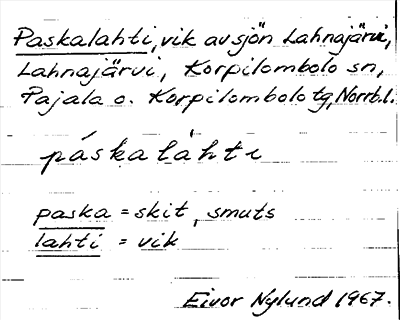 Paskalahti, vik av sjön Lahnajärvi,
Lahnajärvi, Korpilombolo sn,
Pajala o. Korpilombolo tg, Norrb.l.
páskaláhti
paska = skit, smuts
lahti = vik
Eivor Nylund 1967.